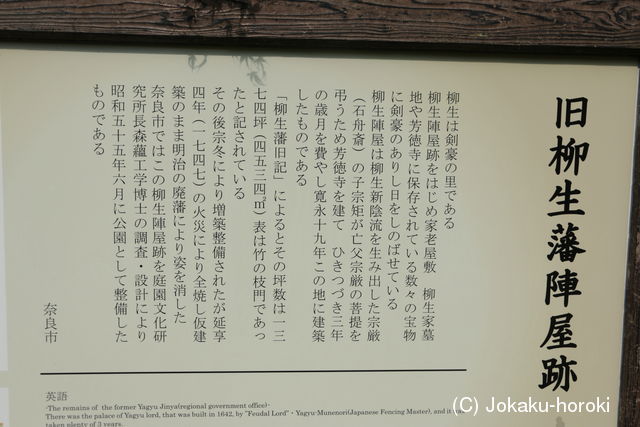 旧柳生藩陣屋跡
柳生は剣豪の里である
柳生陣屋跡をはじめ家老屋敷　柳生家墓
地や芳徳寺に保存されている数々の宝物
に剣豪のありし日をしのばせている
柳生陣屋は柳生新陰流を生み出した宗厳
（石舟斎）の子宗矩が亡父宗厳の菩提を
弔うため芳徳寺を建て　ひきつづき三年
の歳月を費やし寛永十九年この地に建築
したものである
「柳生藩旧記」によるとその坪数は一三
七四坪（四五三四㎡）表は竹の枝門であっ
たと記されている
その後宗冬により増築整備されたが延享
四年（一七四七）の火災により全焼し仮建
築のまま明治の廃藩により姿を消した
奈良市ではこの柳生陣屋跡を庭園文化研
究所長森蘊工学博士の調査・設計により
昭和五十五年六月に公園として整備した
ものである
奈良市
英語
·The remains of the former Yagyu Jinya(regional government office)·
There was the palace of Yagyu lord, that was built in 1642, by "Feudal Lord"・Yagyu·Munenori(Japanese Fencing Master), and it was
taken plenty of 3 years.
(C) Jokaku-horoki